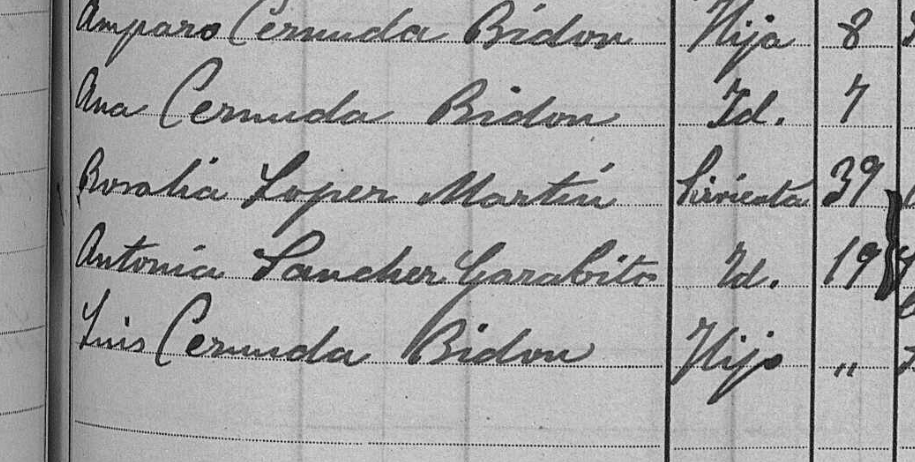 Amparo Cernuda Bidon Hija 8
Ana Cernuda Bidon Id. 7
Rosalia Loper Martín Sirvienta 39
Antonia Sancher Garabito Id. 19
Luis Cernuda Bidon Hijo "